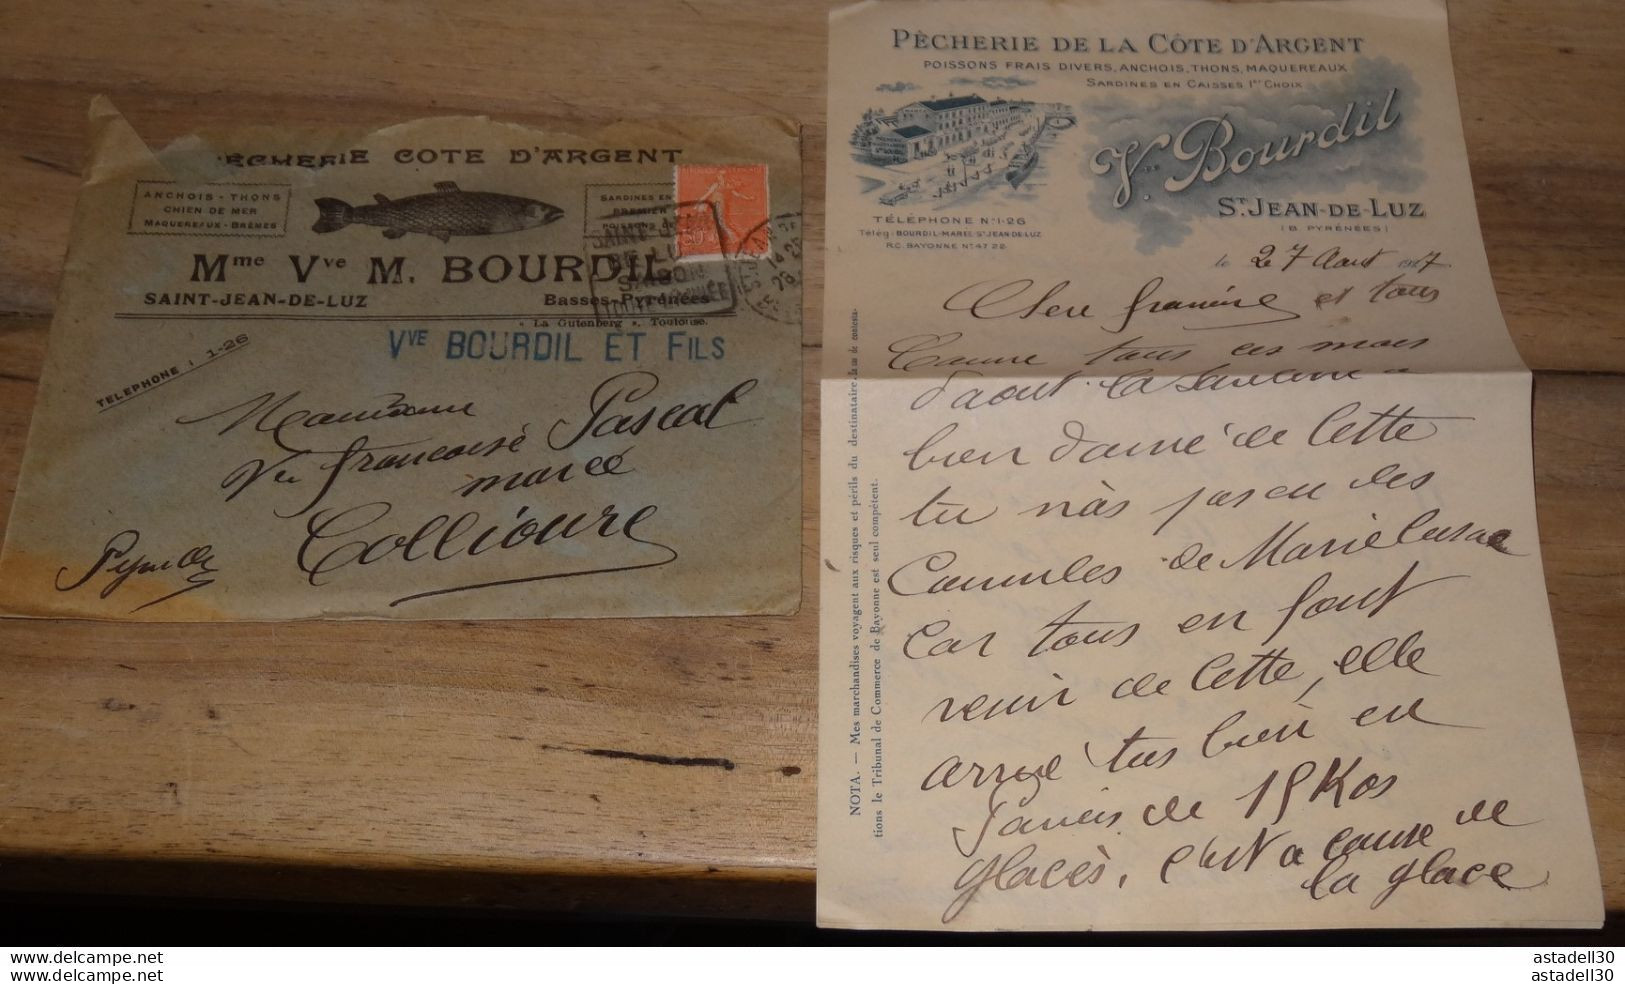 PÊCHERIE COTE D'ARGENT
ANCHOIS - THONS
CHIEN DE MER
MAQUEREAUX - BRÈMES
SARDINES EN
PREMIER
POISSONS
Mme Vve M. BOURDIL
SAINT-JEAN-DE-LUZ
Basses-Pyrénées
« La Gutenberg », Toulouse.
TELEPHONE : 1-26
VVE BOURDIL ET FILS
Madame
Vve françoise Pascal
marée
Collioure
Pyr. or
PÊCHERIE DE LA CÔTE D'ARGENT
POISSONS FRAIS DIVERS, ANCHOIS, THONS, MAQUEREAUX
SARDINES EN CAISSES 1er CHOIX
Vve Bourdil
ST JEAN-DE-LUZ
(B. PYRÉNÉES)
TÉLÉPHONE N° 1-26
Télég: BOURDIL-MAREE-ST JEAN-DE-LUZ
R.C. BAYONNE N° 47 22
le 27 Aout 1927
NOTA. — Mes marchandises voyagent aux risques et périls du destinataire. En cas de contesta-
tions le Tribunal de Commerce de Bayonne est seul compétent.
Chere et tous
Comme tous ces mois
d'aout la sardine a
bien donné de Cette
tu n'as pas eu des
de Marie
car tous en font
venir de Cette, elle
arrive tres bien en
de 15 Kos
glacès, c'est a cause de
la glace
astadell30
astadell30